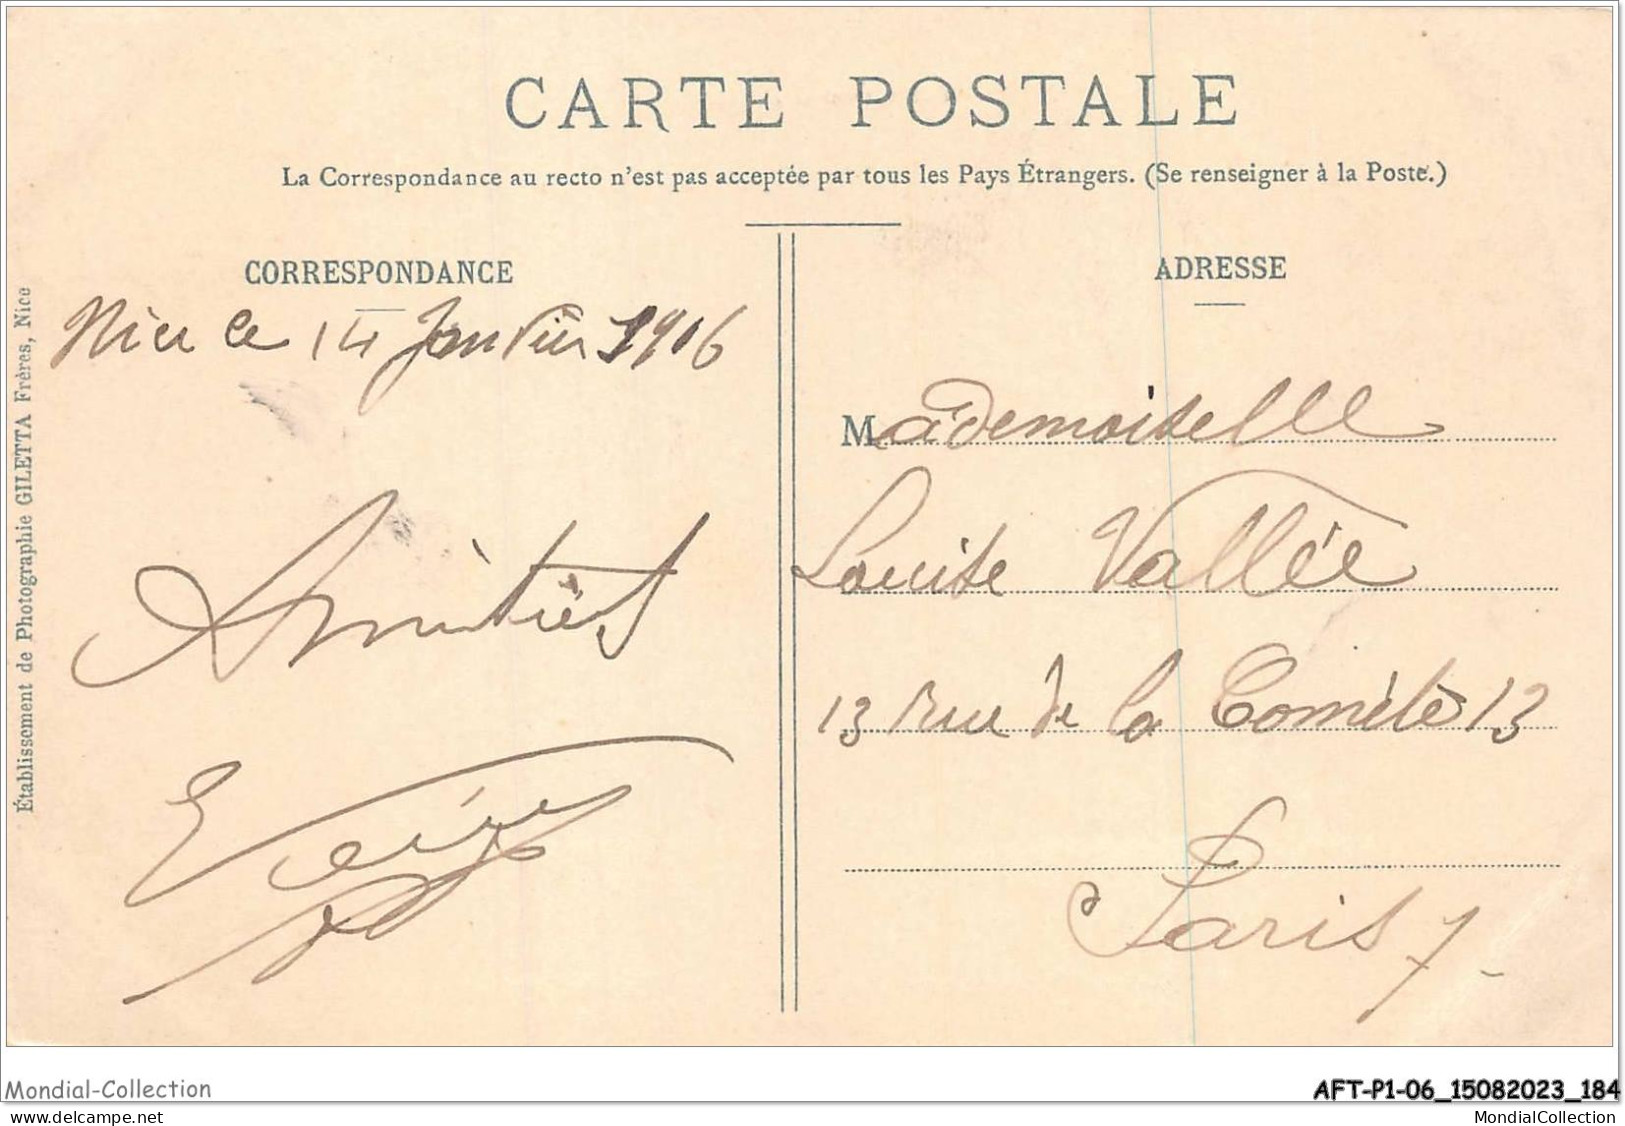 CARTE POSTALE
La Correspondance au recto n'est pas acceptée par tous les Pays Étrangers. (Se renseigner à la Poste.)
CORRESPONDANCE
Nice le 14 Janvier 1906
Amitiés
ADRESSE
Mademoiselle
Louise Vallée
13 Rue de la Comète 13
Paris 7
Établissement de Photographie GILETTA Frères, Nice
Mondial-Collection
AFT-P1-06_15082023_184
www.delcampe.net
MondialCollection